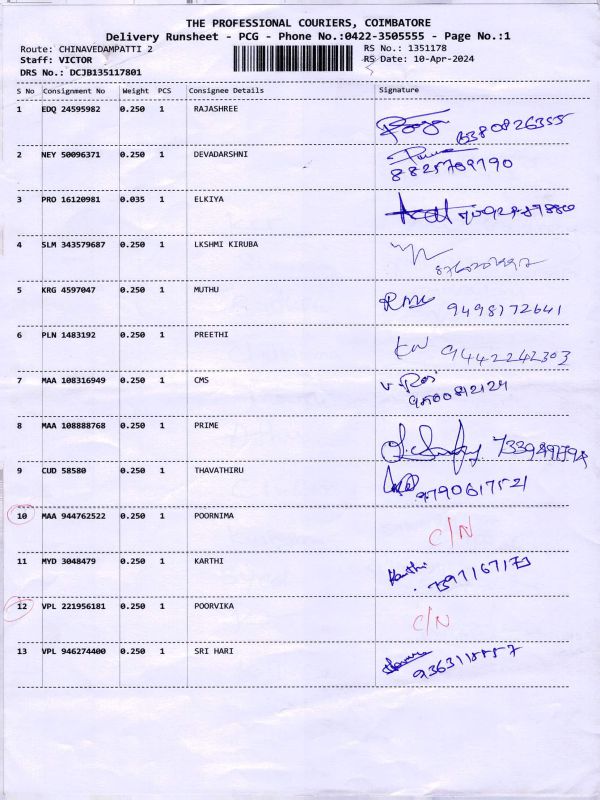 THE PROFESSIONAL COURIERS, COIMBATORE
Delivery Runsheet - PCG - Phone No.:0422-3505555 - Page No.:1
Route: CHINAVEDAMPATTI 2 RS No.: 1351178
Staff: VICTOR RS Date: 10-Apr-2024
DRS No.: DCJB135117801
S No Consignment No Weight PCS Consignee Details Signature
1 EDQ 24595982 0.250 1 RAJASHREE
6380826355
2 NEY 50096371 0.250 1 DEVADARSHNI
8825709790
3 PRO 16120981 0.035 1 ELKIYA
4 SLM 343579687 0.250 1 LKSHMI KIRUBA
5 KRG 4597047 0.250 1 MUTHU
9498172641
6 PLN 1483192 0.250 1 PREETHI
9442242303
7 MAA 108316949 0.250 1 CMS
8 MAA 108888768 0.250 1 PRIME
9 CUD 58580 0.250 1 THAVATHIRU
9790617521
10 MAA 944762522 0.250 1 POORNIMA
C/N
11 MYD 3048479 0.250 1 KARTHI
Karthi
12 VPL 221956181 0.250 1 POORVIKA
C/N
13 VPL 946274400 0.250 1 SRI HARI